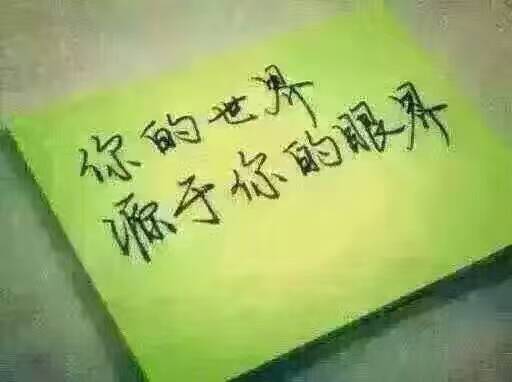 你的世界
源于你的眼界